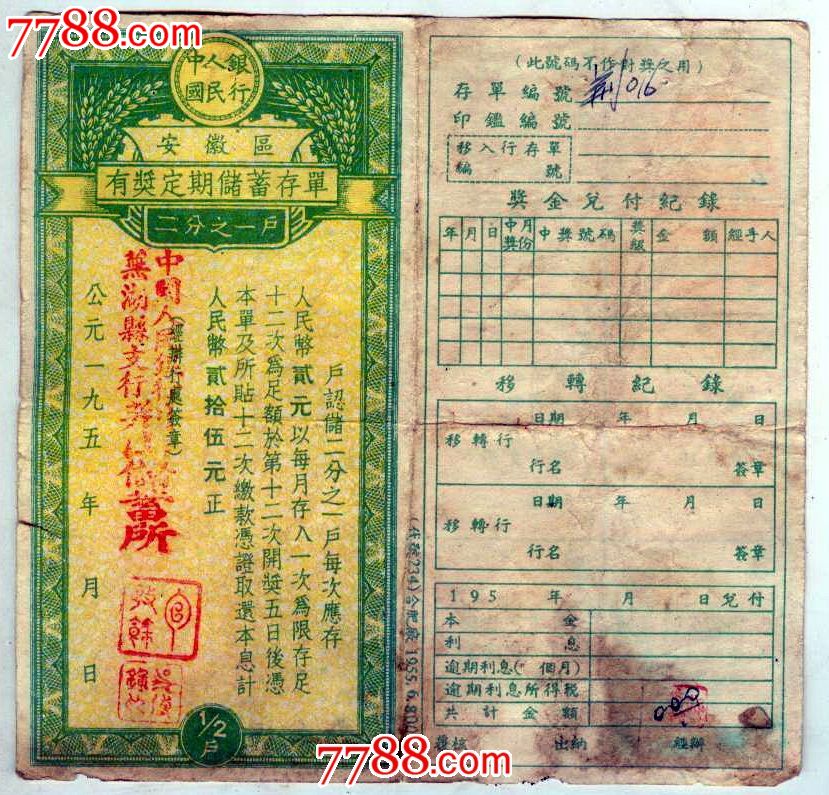 7788.com
中人銀
國民行
安徽區
有獎定期儲蓄存單
二分之一戶
戶認儲二分之一戶每次應存
人民幣貳元以每月存入一次為限存足
十二次為足額於第十二次開獎五日後憑
本單及所貼十二次繳款憑證取還本息計
人民幣貳拾伍元正
(經辦行處簽章)
中國人民銀行
蕪湖縣支行
儲蓄所
公元一九五 年 月 日
1/2
戶
7788.com
(此號碼不作對獎之用)
存單編號
016
印鑑編號
移入行存單
編號
獎金兌付紀錄
年 月 日 中獎月份 中獎號碼 獎級 金額 經手人
移轉紀錄
日期 年 月 日
移轉行
行名 簽章
日期 年 月 日
移轉行
行名 簽章
195 年 月 日兌付
本金
利息
逾期利息( 個月)
逾期利息所得稅
共計金額
覆核 出納 經辦
7788.com